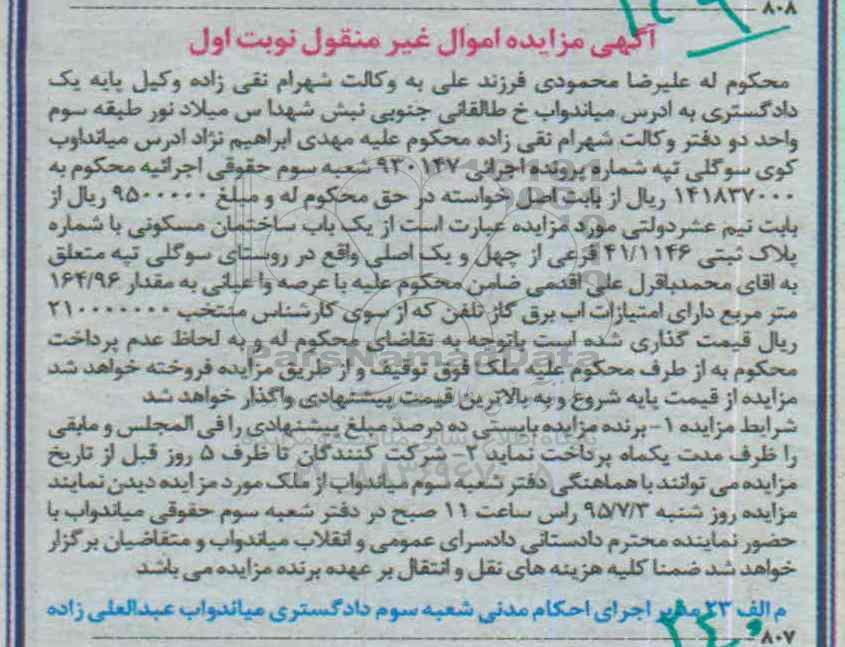 ۸۰۸
آگهی مزایده اموال غیر منقول نوبت اول
محکوم له علیرضا محمودی فرزند علی به وکالت شهرام نقی زاده وکیل پایه یک
دادگستری به ادرس میاندواب خ طالقانی جنوبی نبش شهدا س میلاد نور طبقه سوم
واحد دو دفتر وکالت شهرام نقی زاده محکوم علیه مهدی ابراهیم نژاد ادرس میانداوب
کوی سوگلی تپه شماره پرونده اجرائی ۹۳۰۱۴۷ شعبه سوم حقوقی اجرائیه محکوم به
۱۴۱۸۳۷۰۰۰ ریال از بابت اصل خواسته در حق محکوم له و مبلغ ۹۵۰۰۰۰۰ ریال از
بابت نیم عشردولتی مورد مزایده عبارت است از یک باب ساختمان مسکونی با شماره
پلاک ثبتی ۴۱/۱۱۴۶ فرعی از چهل و یک اصلی واقع در روستای سوگلی تپه متعلق
به اقای محمدباقرل علی اقدمی ضامن محکوم علیه با عرصه وا عیانی به مقدار ۱۶۴/۹۶
متر مربع دارای امتیازات اب برق گاز تلفن که از سوی کارشناس منتخب ۲۱۰۰۰۰۰۰۰
ریال قیمت گذاری شده است باتوجه به تقاضای محکوم له و به لحاظ عدم پرداخت
محکوم به از طرف محکوم علیه ملک فوق توقیف و از طریق مزایده فروخته خواهد شد
مزایده از قیمت پایه شروع و به بالاترین قیمت پیشنهادی واگذار خواهد شد
شرایط مزایده ۱- برنده مزایده بایستی ده درصد مبلغ پیشنهادی را فی المجلس و مابقی
را ظرف مدت یکماه پرداخت نماید ۲- شرکت کنندگان تا ظرف ۵ روز قبل از تاریخ
مزایده می توانند با هماهنگی دفتر شعبه سوم میاندواب از ملک مورد مزایده دیدن نمایند
مزایده روز شنبه ۹۵/۷/۳ راس ساعت ۱۱ صبح در دفتر شعبه سوم حقوقی میاندواب با
حضور نماینده محترم دادستانی دادسرای عمومی و انقلاب میاندواب و متقاضیان برگزار
خواهد شد ضمنا کلیه هزینه های نقل و انتقال بر عهده برنده مزایده می باشد
م الف ۲۳ مدیر اجرای احکام مدنی شعبه سوم دادگستری میاندواب عبدالعلی زاده
۸۰۷
ParsNamadData